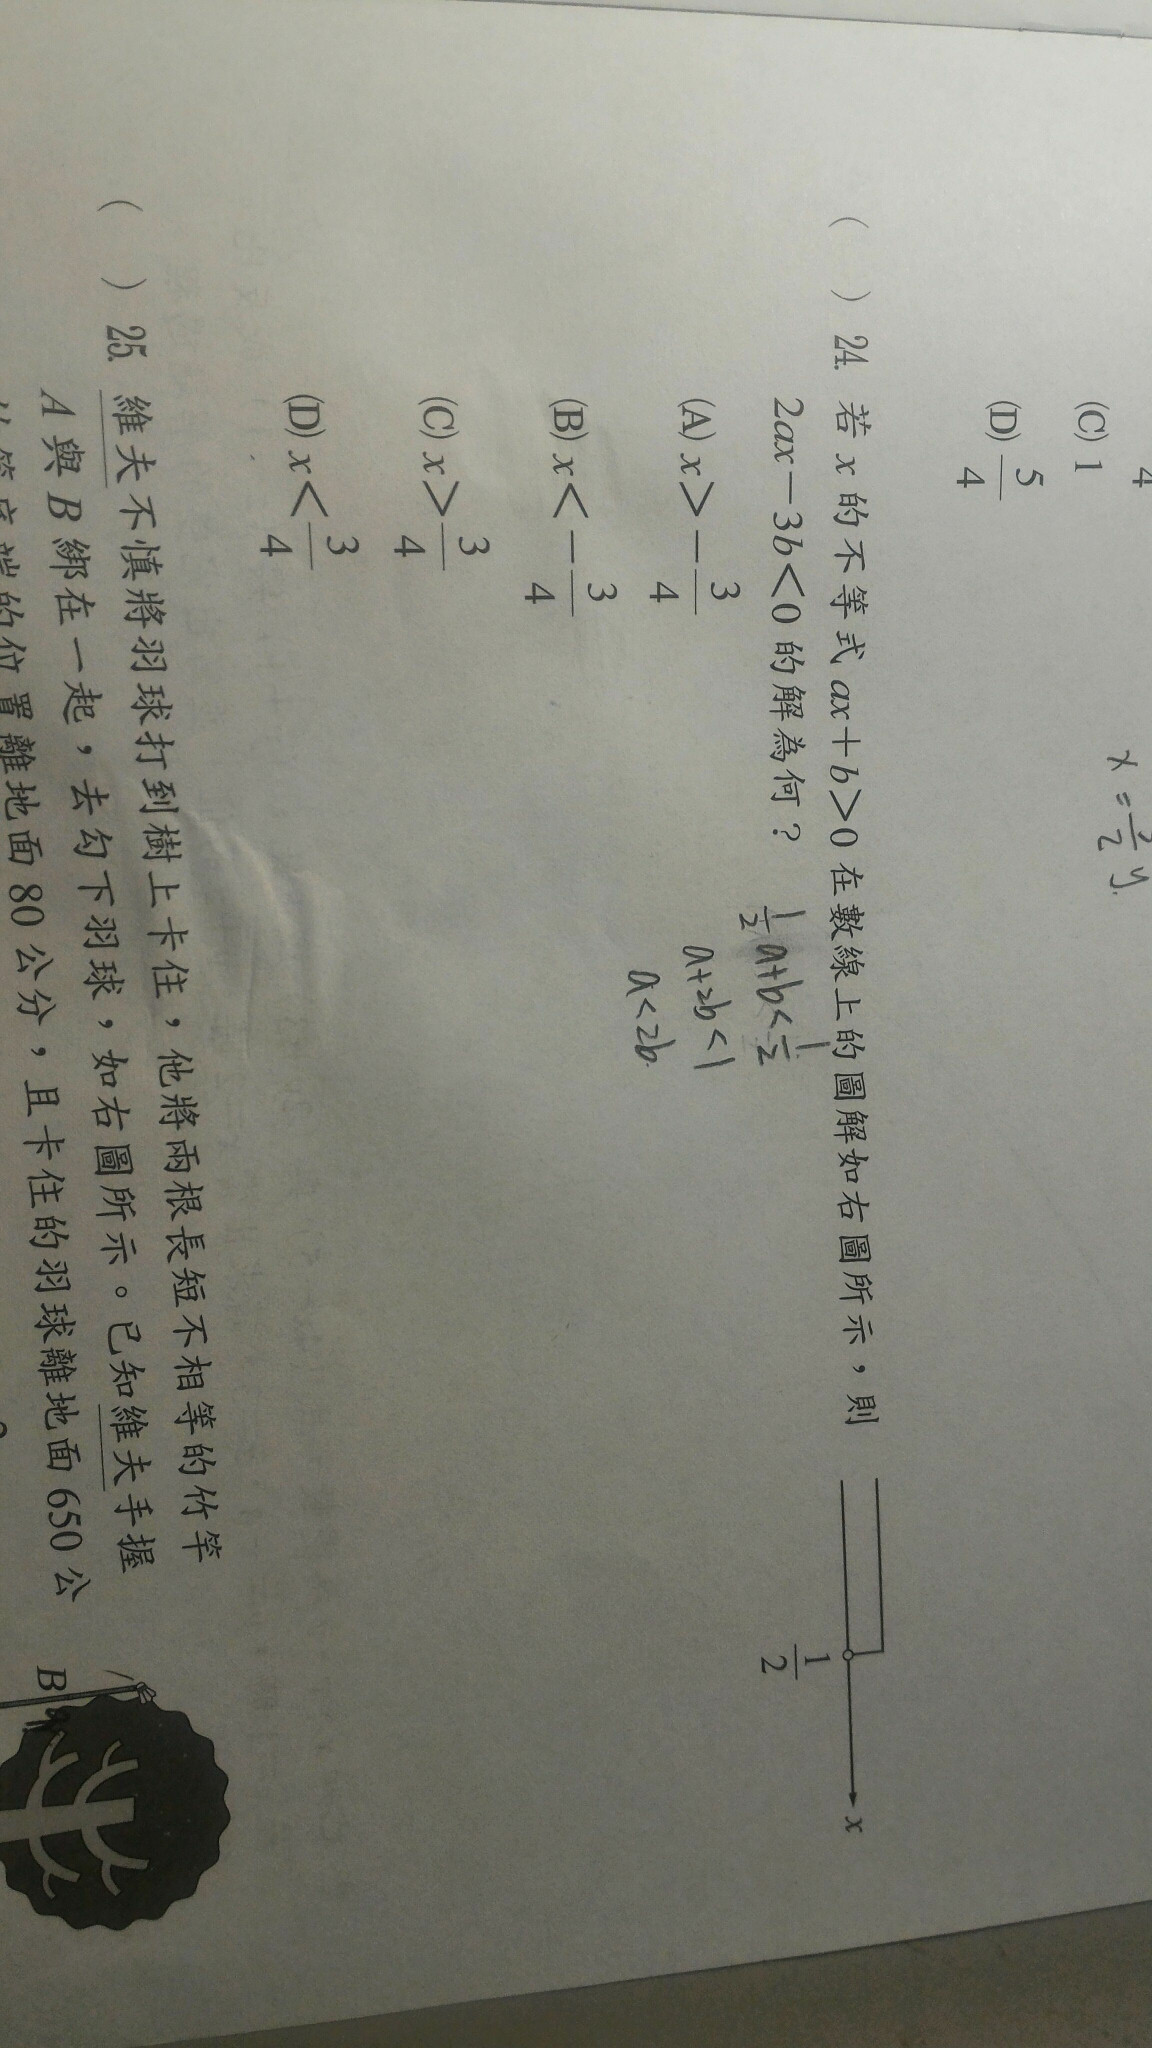 4
(C) 1
(D) 5/4
x = /2 y.
( ) 24. 若 x 的不等式 ax＋b＞0 在數線上的圖解如右圖所示，則
2ax－3b＜0 的解為何？
(A) x＞－3/4
(B) x＜－3/4
(C) x＞3/4
(D) x＜3/4
1/2 a+b<1/2
a+2b<1
a<2b.
1/2
x
( ) 25. 維夫不慎將羽球打到樹上卡住，他將兩根長短不相等的竹竿
A 與 B 綁在一起，去勾下羽球，如右圖所示。已知維夫手握
端的位置離地面 80 公分，且卡住的羽球離地面 650 公
B